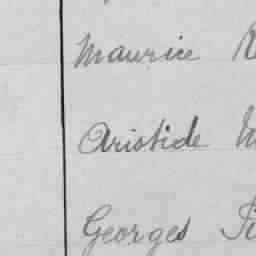 Maurice
Aristide
Georges